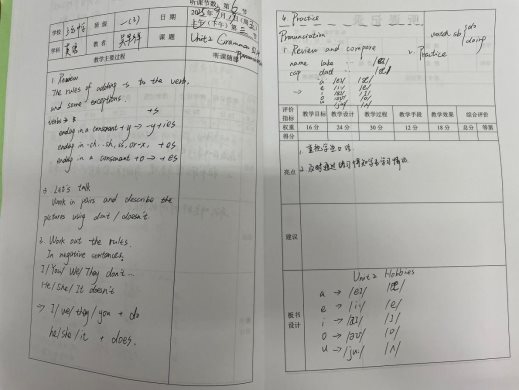 学校
班级 一(3)
日期
听课节数 第6节
(下午)第三节
学科 英语
教者
课题 Unit2 Grammar
Pronunciation
教学主要过程
听课随感
1. Review
The rules of adding -s to the verb.
and some exceptions.
verbs → +s
ending in a consonant + y → -y+ies
ending in -ch, -sh, -s, or -x, +es
ending in a consonant + o → + es
2. Let's talk
Work in pairs and describe the
pictures using don't / doesn't.
3. Work out the rules.
In negative sentences.
I/You/We/They don't...
He/She/It doesn't
→ I/we/they/you + do
he/she/it + does.
4. Practice
Pronunciation
1. Review and compare
name
cap
a /eɪ/ /æ/
e /i:/ /e/
2. Practice
watch sb do
doing
评价指标 教学目标 教学设计 教学过程 教学手段 教学效果 综合评价
权重 16 分 24 分 30 分 12 分 18 分 总分 等第
得分
亮点
1. 重视学生口语.
建议
板书设计
Unit 2 Hobbies
a → /eɪ/ /æ/
e → /i:/ /e/
i → /aɪ/ /ɪ/
o → /əʊ/ /ɒ/
u → /ju:/ /ʌ/